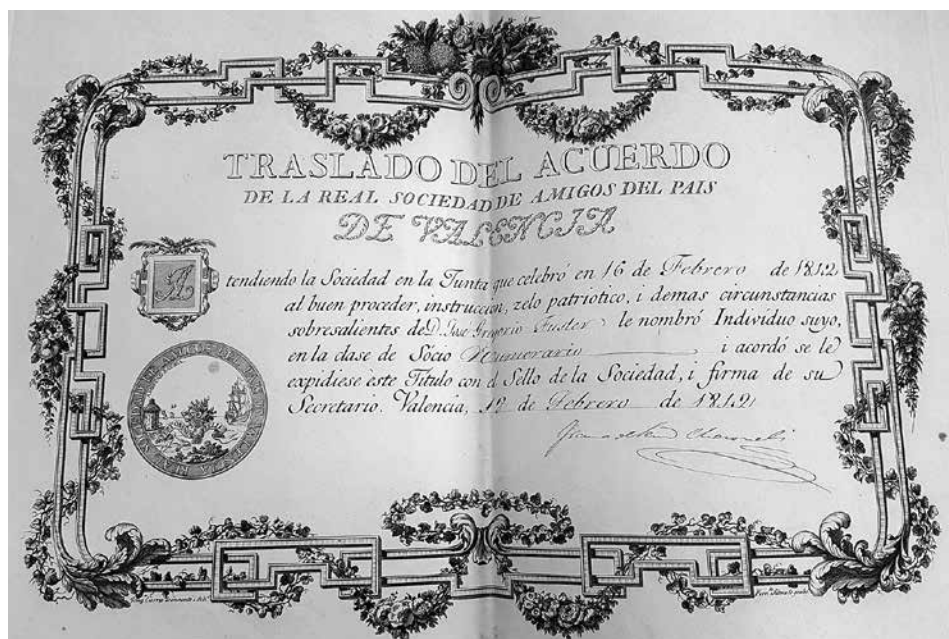 TRASLADO DEL ACUERDO
DE LA REAL SOCIEDAD DE AMIGOS DEL PAIS
DE VALENCIA
Atendiendo la Sociedad en la Junta que celebró en 16 de Febrero de 1812
al buen proceder, instruccion, zelo patriotico, i demas circunstancias
sobresalientes de D. José Gregorio Fuster le nombró Individuo suyo,
en la clase de Sócio Numerario i acordó se le
expidiese este Titulo con el Sello de la Sociedad, i firma de su
Secretario. Valencia, de Febrero de